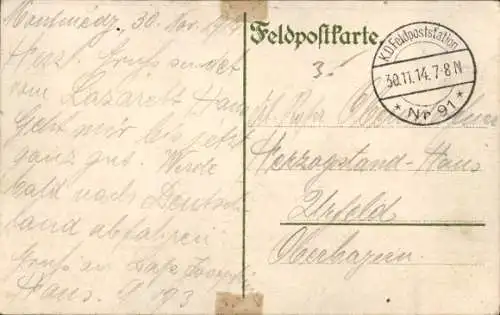 Montmédy 30. Nov. 1914
Herzl. Gruss sendet
vom Lazarett Hans
Geht mir bis jetzt
ganz gut. Werde
bald nach Deutsch-
land abfahren
Gruss an
Hans.
Feldpostkarte
K.D. Feldpoststation
30.11.14. 7-8 N
* Nr. 91 *
Herzogstand-Haus
Urfeld
Oberbayern.